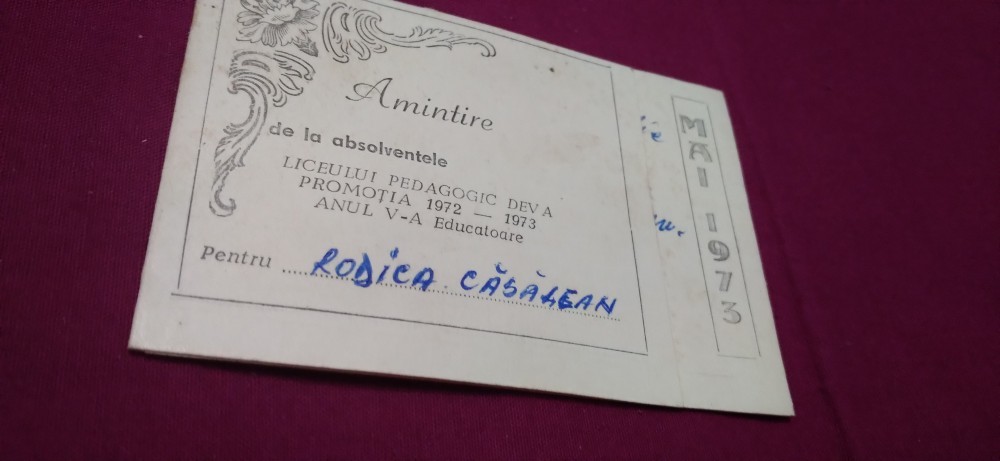 Amintire
de la absolventele
LICEULUI PEDAGOGIC DEVA
PROMOȚIA 1972 — 1973
ANUL V-A Educatoare
Pentru RODICA CĂSĂLEAN
MAI 1973